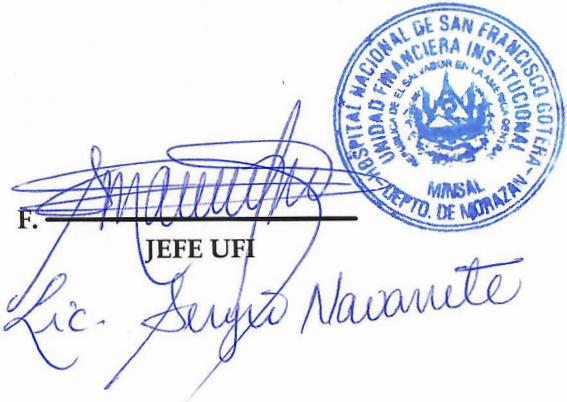 HOSPITAL NACIONAL DE SAN FRANCISCO GOTERA-
UNIDAD FINANCIERA INSTITUCIONAL
REPUBLICA DE EL SALVADOR EN LA AMERICA CENTRAL
MINSAL
DEPTO. DE MORAZAN
F.
JEFE UFI
Lic. Sergio Navarrete